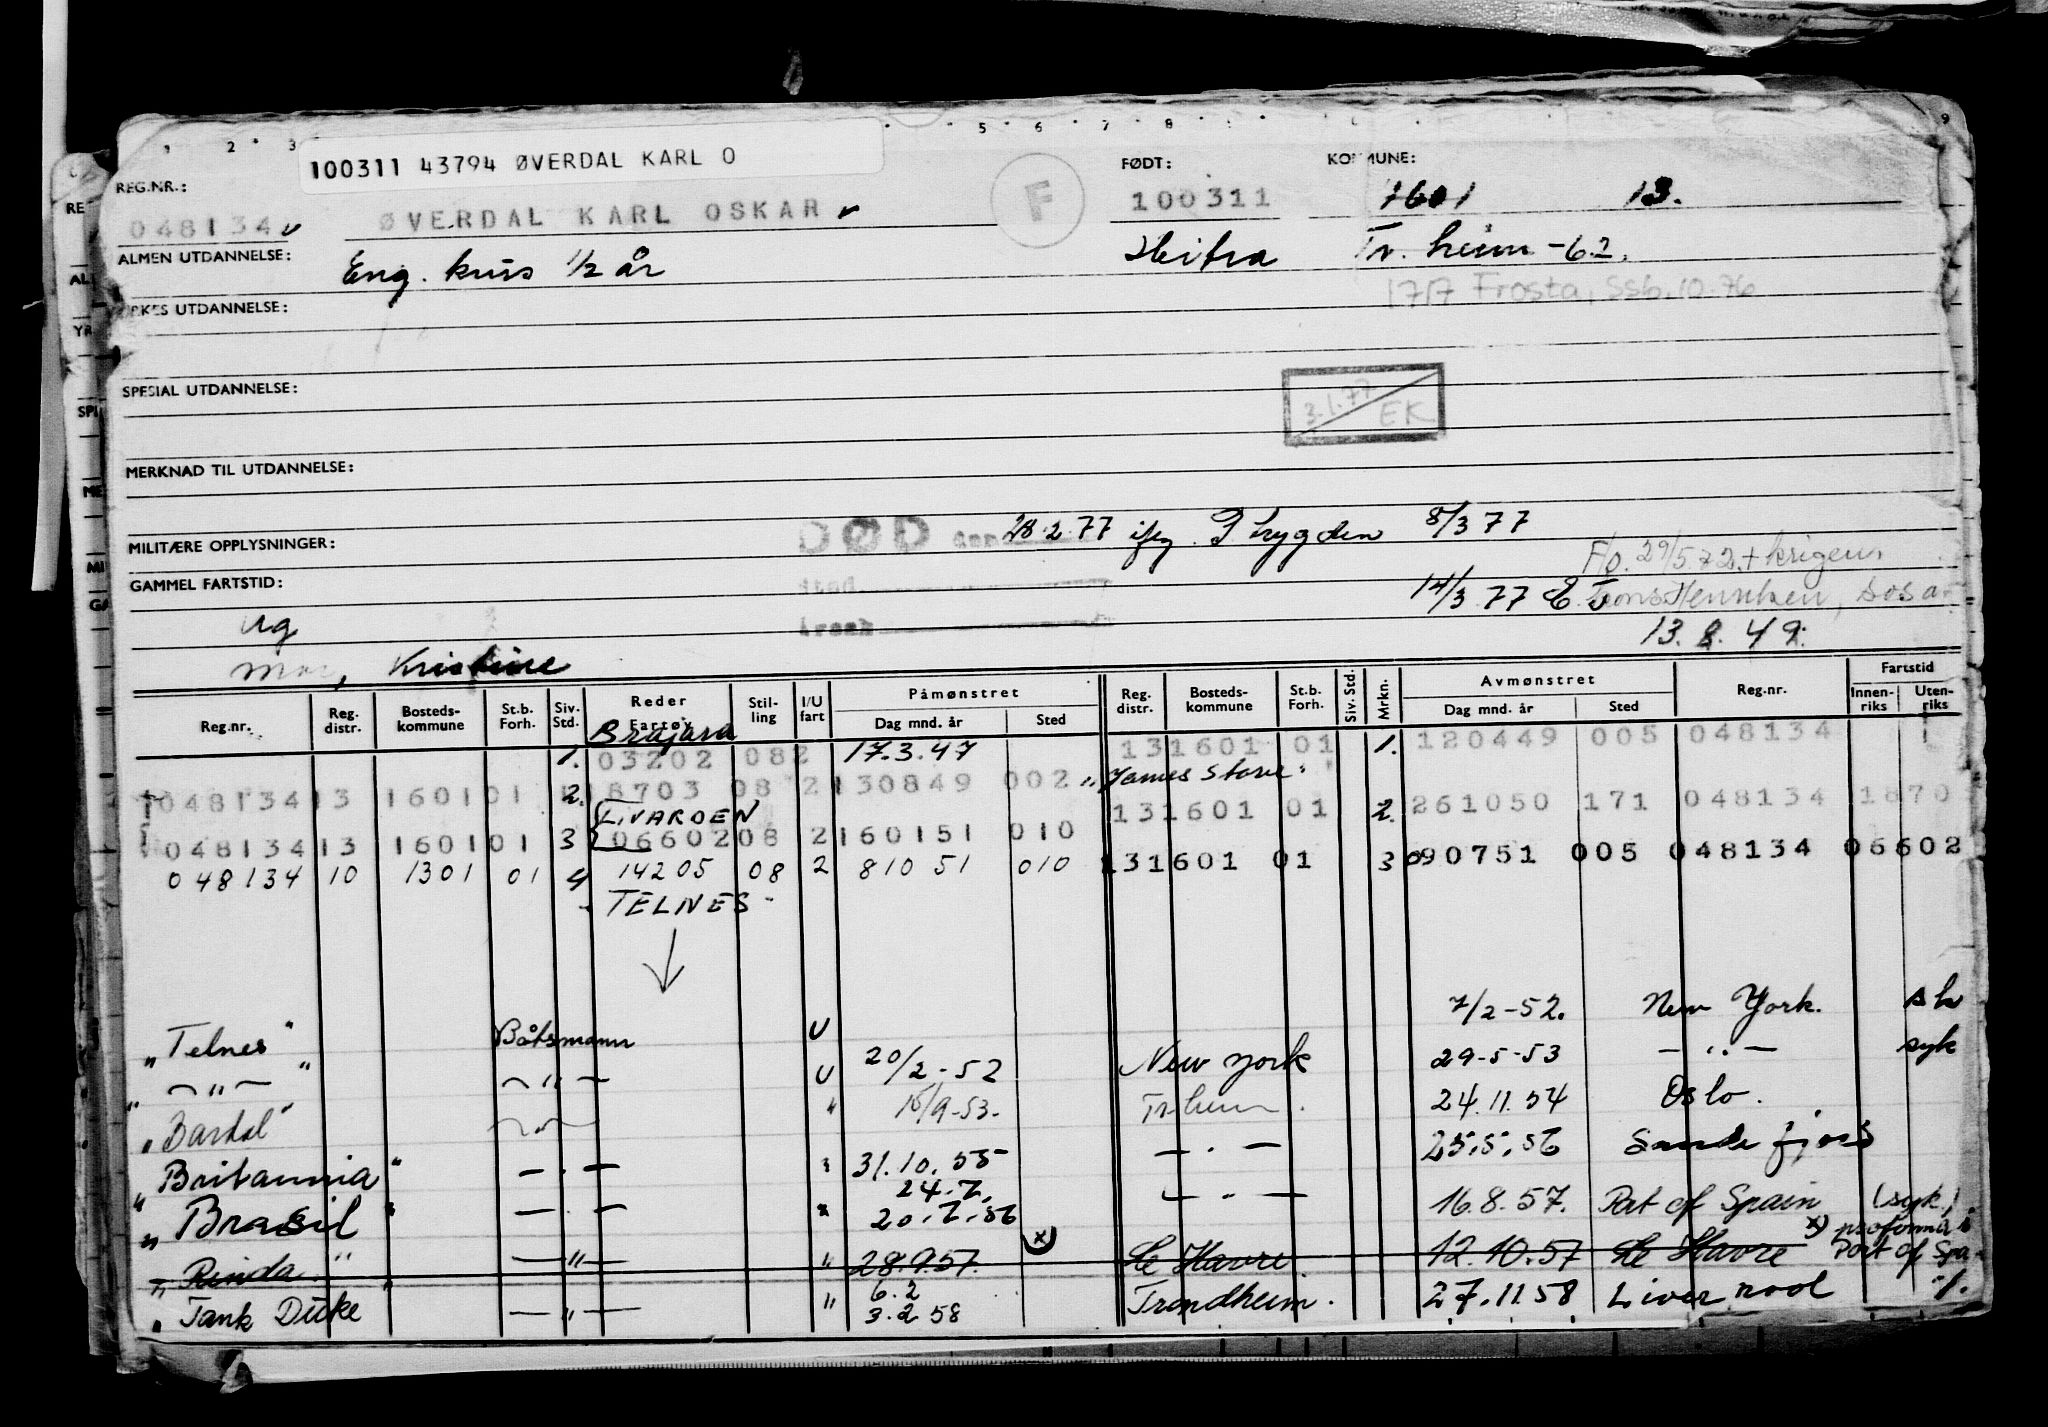 100311 43794 ØVERDAL KARL O
REG.NR.: FØDT: KOMMUNE:
048134 ØVERDAL KARL OSKAR F 100311 1601 13.
ALMEN UTDANNELSE: Eng. kurs 1/2 år Hitra Tr. heim -62.
1717 Frosta, SSb. 10.76
YRKES UTDANNELSE:
SPESIAL UTDANNELSE:
3.1.77 EK
MERKNAD TIL UTDANNELSE:
MILITÆRE OPPLYSNINGER: DØD 28.2.77 iflg. Trygden 8/3 77
F/o. 29/5.72 + krigen
GAMMEL FARTSTID: 14/3 77
ug 13.8.49.
Mor, Kristine
Reg.nr. Reg. distr. Bosteds- kommune St.b. Forh. Siv. Std. Reder Fartøy Stil- ling I/U fart Påmønstret Dag mnd. år Sted Reg. distr. Bosteds- kommune St.b. Forh. Siv. Std. Mrkn. Avmønstret Dag mnd. år Sted Reg.nr. Fartstid Innen- riks Uten- riks
Brajara
1. 03202 082 17.3.47 131601 01 1. 120449 005 048134
048134 13 1601 01 2. 18703 08 2 130849 002 "James Stove"
131601 01 2. 261050 171 048134 1870
TIVARDEN
048134 13 1601 01 3 06602 08 2 160151 010
048134 10 1301 01 4 14205 08 2 81051 010 131601 01 3 090751 005 048134 06602
- TELNES -
7/2-52. New York.
"Telnes" Båtsmann U
— " — — " — U 20/2-52 New York 29-5-53 — " — syk
"Bardal" " 15/9-53. Tr-heim. 24.11.54 Oslo.
"Britannia" — " — " 31.10.55 — " — 25.5.56 Sandefjord
24.7.
"Brasil" — " — " 20.7.56 — " — 16.8.57. Port of Spain (syk)
"Rinda" — " — " 28.9.57. x) Le Havre. 12.10.57 Le Havre x) proforma i Port of Spa-
6.2
"Tank Duke" — " — " 3.2 58 Trondheim. 27.11.58 Liverpool